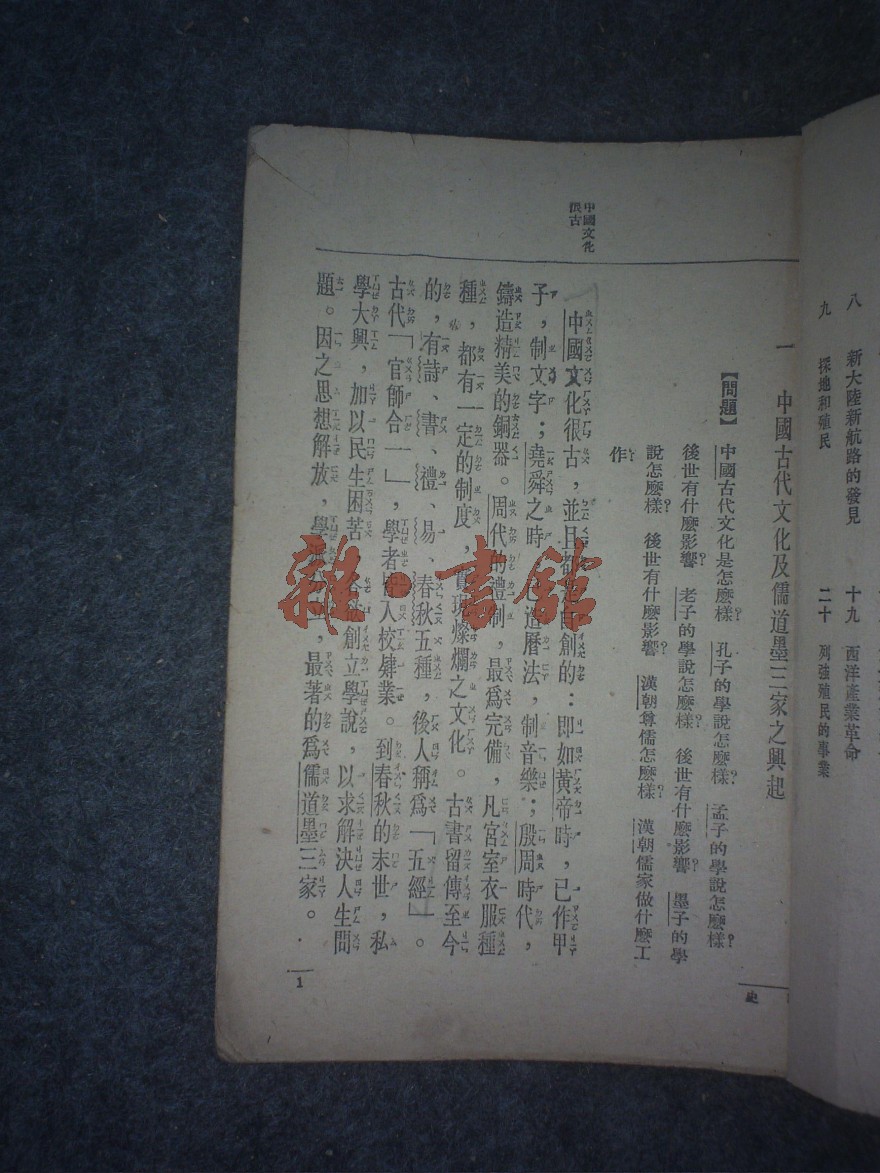 八　新大陸新航路的發見
十九　西洋產業革命
九　探地和殖民
二十　列強殖民的事業
史
一　中國古代文化及儒道墨三家之興起
【問題】中國古代文化是怎麽樣?　孔子的學說怎麽樣?　孟子的學說怎麽樣?
後世有什麽影響?　老子的學說怎麽樣?　後世有什麽影響?　墨子的學
說怎麽樣?　後世有什麽影響?　漢朝尊儒怎麽樣?　漢朝儒家做什麽工
作?
中國文化
很古
中國文化很古，並且都是自創的：即如黃帝時，已作甲
子，制文字；堯舜之時，造曆法，制音樂；殷周時代，
鑄造精美的銅器。周代的禮制，最爲完備，凡宮室衣服種
種，都有一定的制度，實斑爛之文化。古書留傳至今
的，有詩、書、禮、易、春秋五種，後人稱爲「五經」。
古代「官師合一」，學者皆入校肄業。到春秋的末世，私
學大興，加以民生困苦，創立學說，以求解決人生問
題。因之思想解放，學，最著的爲儒道墨三家。
1
雜·書館